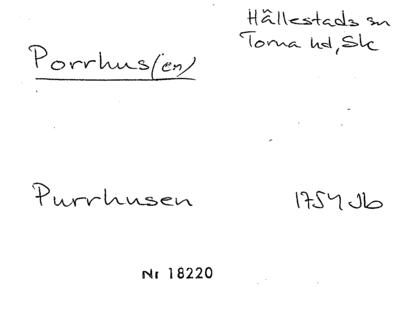 Hållestads sn
Torna hd, Sk
Porrhus(en)
Purrhusen 1754 Jb
Nr 18220